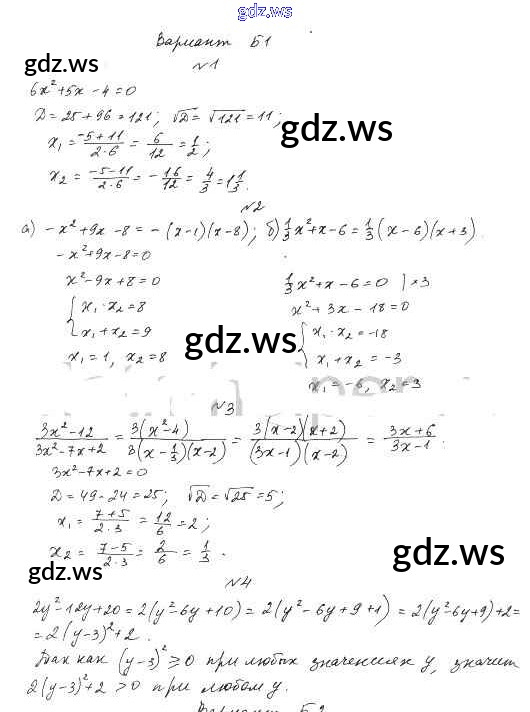 gdz.ws
Вариант Б1
gdz.ws
№1
6x²+5x-4=0
D=25+96=121; √D=√121=11;
gdz.ws
x₁=(-5+11)/(2·6)=6/12=1/2;
x₂=(-5-11)/(2·6)=-16/12=4/3=1 1/3.
№2
а) -x²+9x-8=-(x-1)(x-8); б) 1/3x²+x-6=1/3(x-6)(x+3).
-x²+9x-8=0
x²-9x+8=0
1/3x²+x-6=0 |×3
{x₁·x₂=8
x²+3x-18=0
x₁+x₂=9
{x₁·x₂=-18
gdz.ws
x₁+x₂=-3
x₁=1, x₂=8
x₁=-6, x₂=3
№3
(3x²-12)/(3x²-7x+2)=3(x²-4)/(3(x-1/3)(x-2))=3(x-2)(x+2)/((3x-1)(x-2))=(3x+6)/(3x-1).
3x²-7x+2=0
D=49-24=25; √D=√25=5;
x₁=(7+5)/(2·3)=12/6=2;
x₂=(7-5)/(2·3)=2/6=1/3.
gdz.ws
gdz.ws
№4
2y²-12y+20=2(y²-6y+10)=2(y²-6y+9+1)=2(y²-6y+9)+2=
=2(y-3)²+2.
Так как (y-3)²≥0 при любых значениях y, значит
2(y-3)²+2>0 при любом y.
gdz.ws
gdz.ws
Вариант Б2